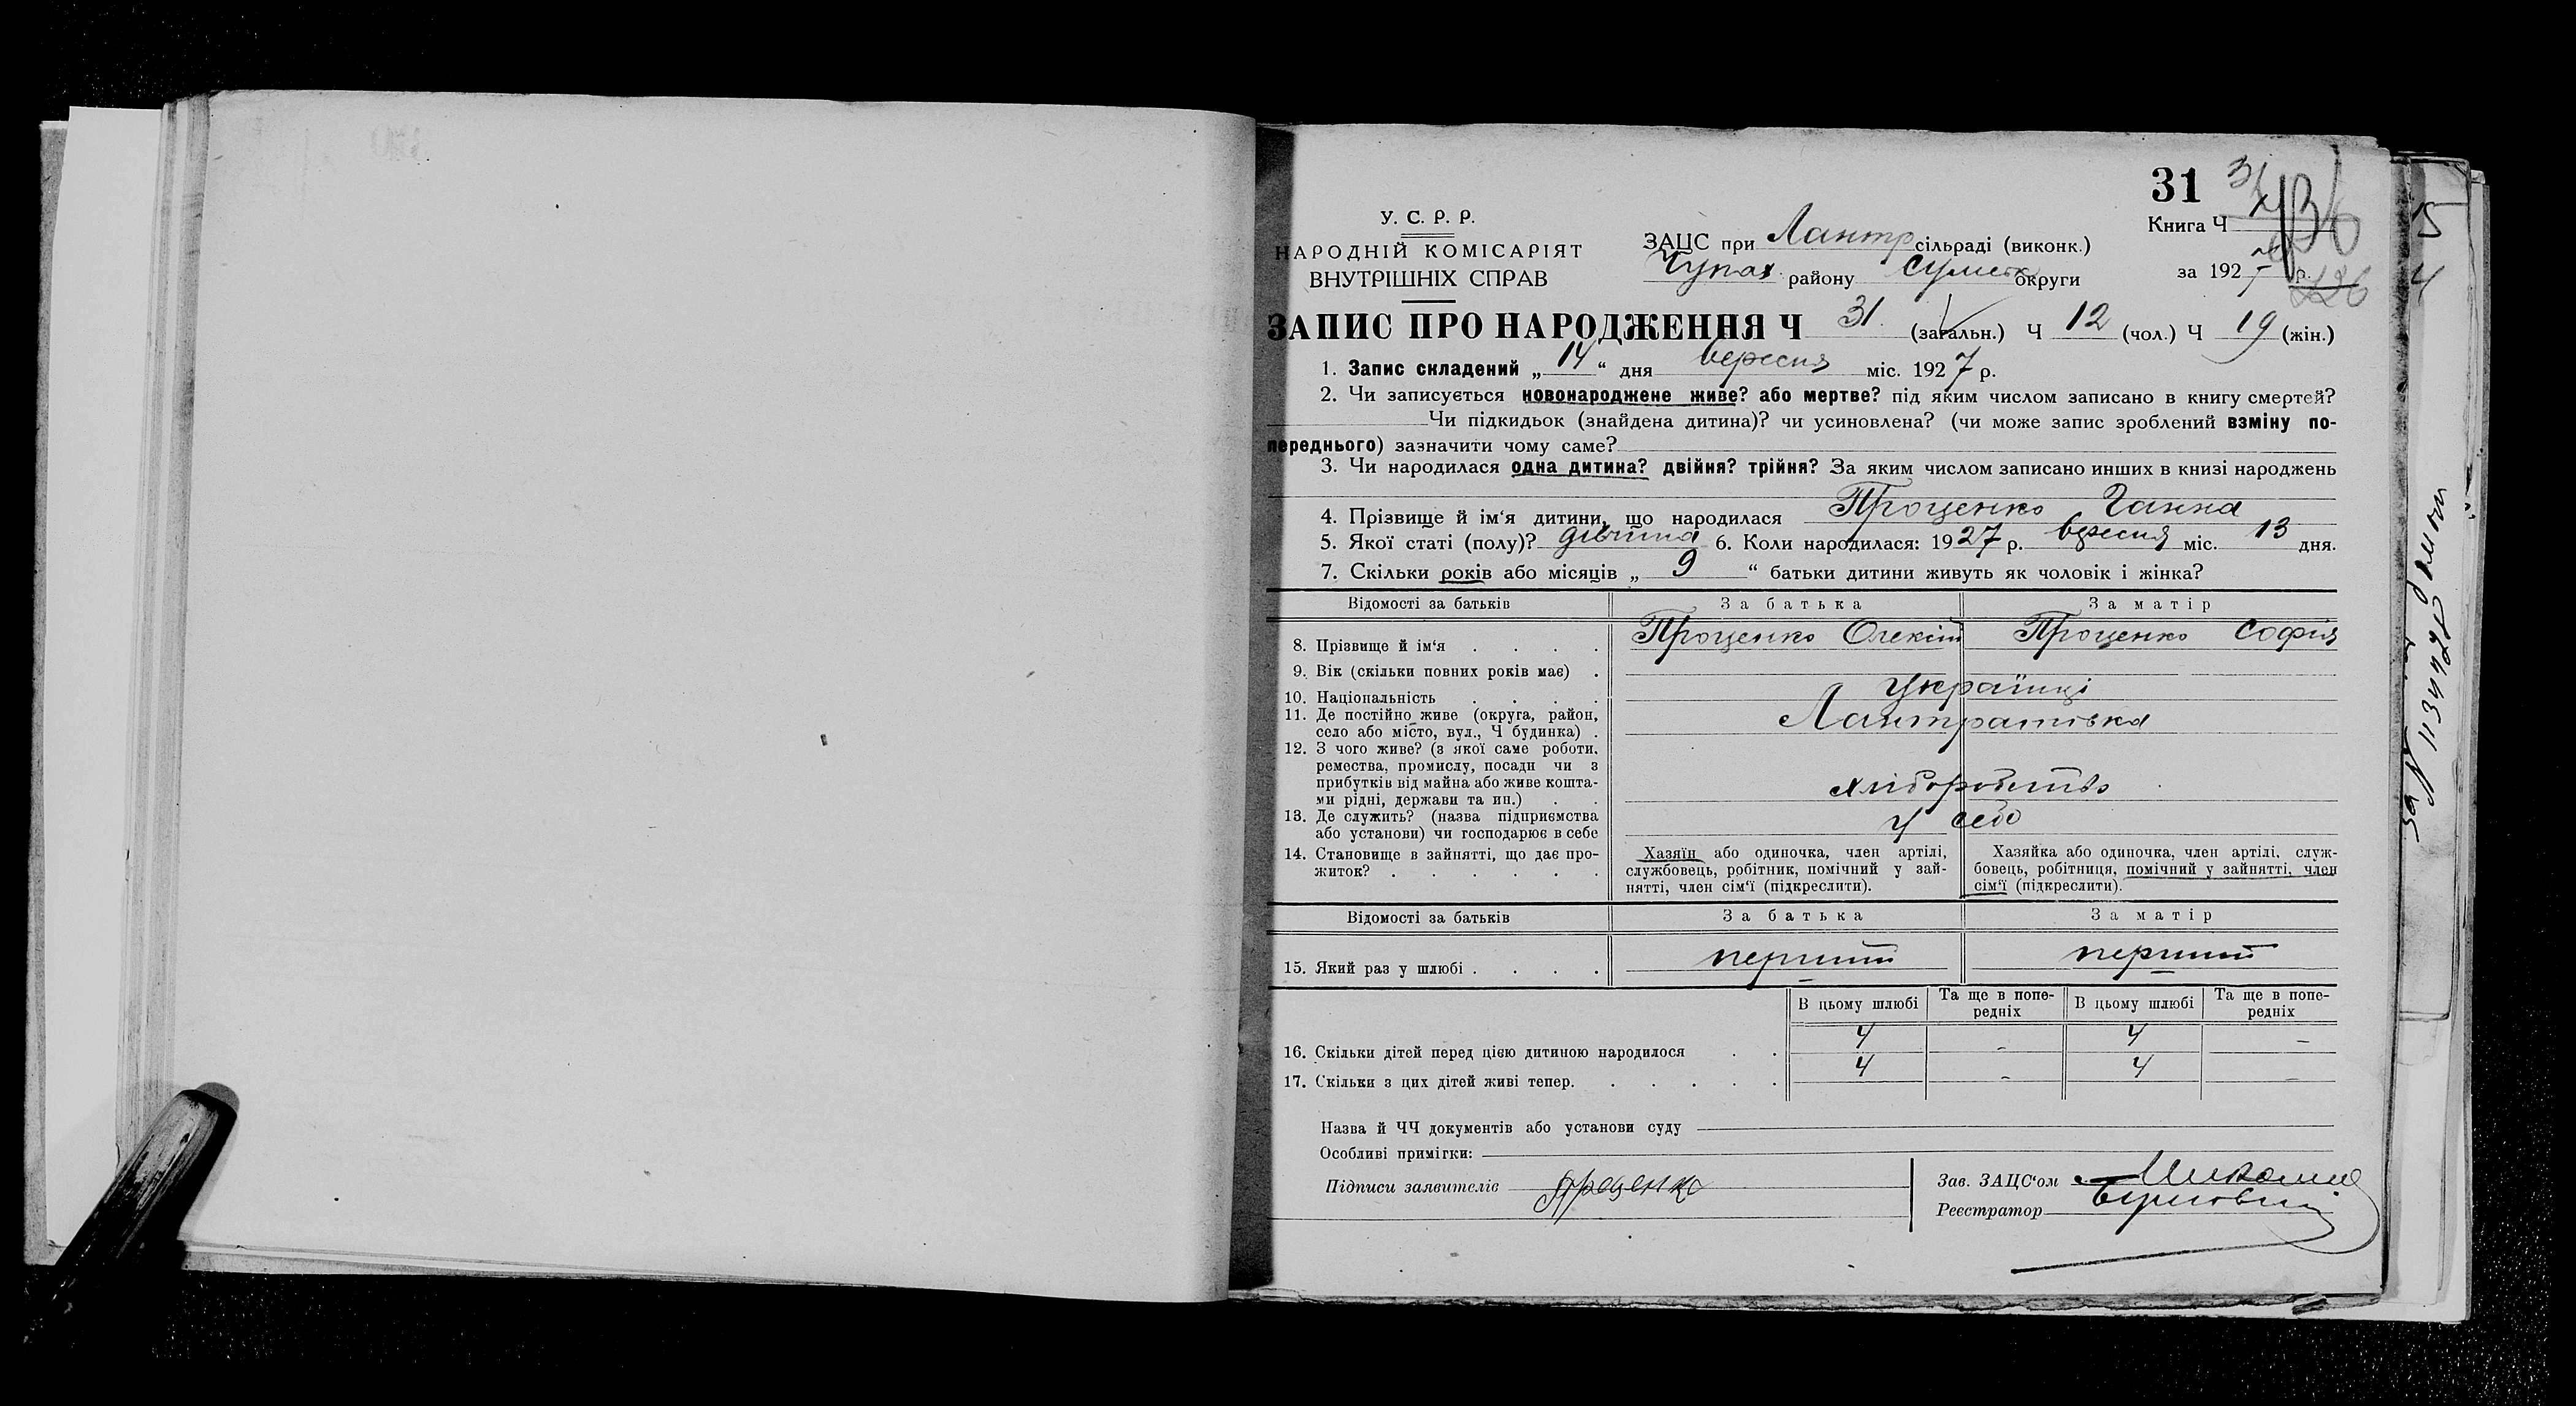 31
У. С. Р. Р.
Книга Ч
НАРОДНІЙ КОМІСАРІЯТ
ВНУТРІШНІХ СПРАВ
ЗАЦС при Лантр сільраді (виконк.)
Чупах району Сумськ округи
за 1927 р.
ЗАПИС ПРО НАРОДЖЕННЯ Ч 31 (загальн.) Ч 12 (чол.) Ч 19 (жін.)
1. Запис складений „14“ дня вересня міс. 1927 р.
2. Чи записується новонароджене живе? або мертве? під яким числом записано в книгу смертей?
Чи підкидьок (знайдена дитина)? чи усиновлена? (чи може запис зроблений взміну по-
переднього) зазначити чому саме?
3. Чи народилася одна дитина? двійня? трійня? За яким числом записано инших в книзі народжень
4. Прізвище й ім‘я дитини, що народилася Проценко Ганна
5. Якої статі (полу)? дівчина 6. Коли народилася: 1927 р. вересня міс. 13 дня.
7. Скільки років або місяців „9“ батьки дитини живуть як чоловік і жінка?
Відомості за батьків За батька За матір
8. Прізвище й ім‘я . . . . Проценко Олексій Проценко Софія
9. Вік (скільки повних років має) .
10. Національність . . . . Українці
11. Де постійно живе (округа, район,
село або місто, вул., Ч будинка) . Лантратівка
12. З чого живе? (з якої саме роботи,
ремества, промислу, посади чи з
прибутків від майна або живе кошта-
ми рідні, держави та ин.) . . хліборобство
13. Де служить? (назва підприємства
або установи) чи господарює в себе У себе
14. Становище в зайнятті, що дає про-
житок? . . . . . .
Хазяїн або одиночка, член артілі,
службовець, робітник, помічний у зай-
нятті, член сім‘ї (підкреслити).
Хазяйка або одиночка, член артілі, служ-
бовець, робітниця, помічний у зайнятті, член
сім‘ї (підкреслити).
Відомості за батьків За батька За матір
15. Який раз у шлюбі . . . . перший перший
В цьому шлюбі Та ще в попе-
редніх В цьому шлюбі Та ще в попе-
редніх
16. Скільки дітей перед цією дитиною народилося . . 4 - 4 -
17. Скільки з цих дітей живі тепер. . . . . . 4 - 4 -
Назва й ЧЧ документів або установи суду
Особливі примітки:
Підписи заявителів Проценко
Зав. ЗАЦС‘ом
Реєстратор